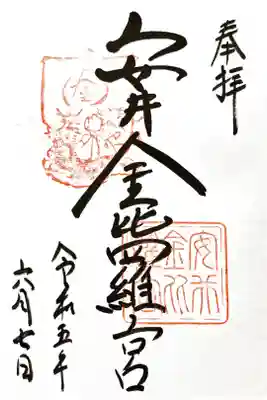 奉拝
安井金毘羅宮
令和五年
六月七日
安井
金比